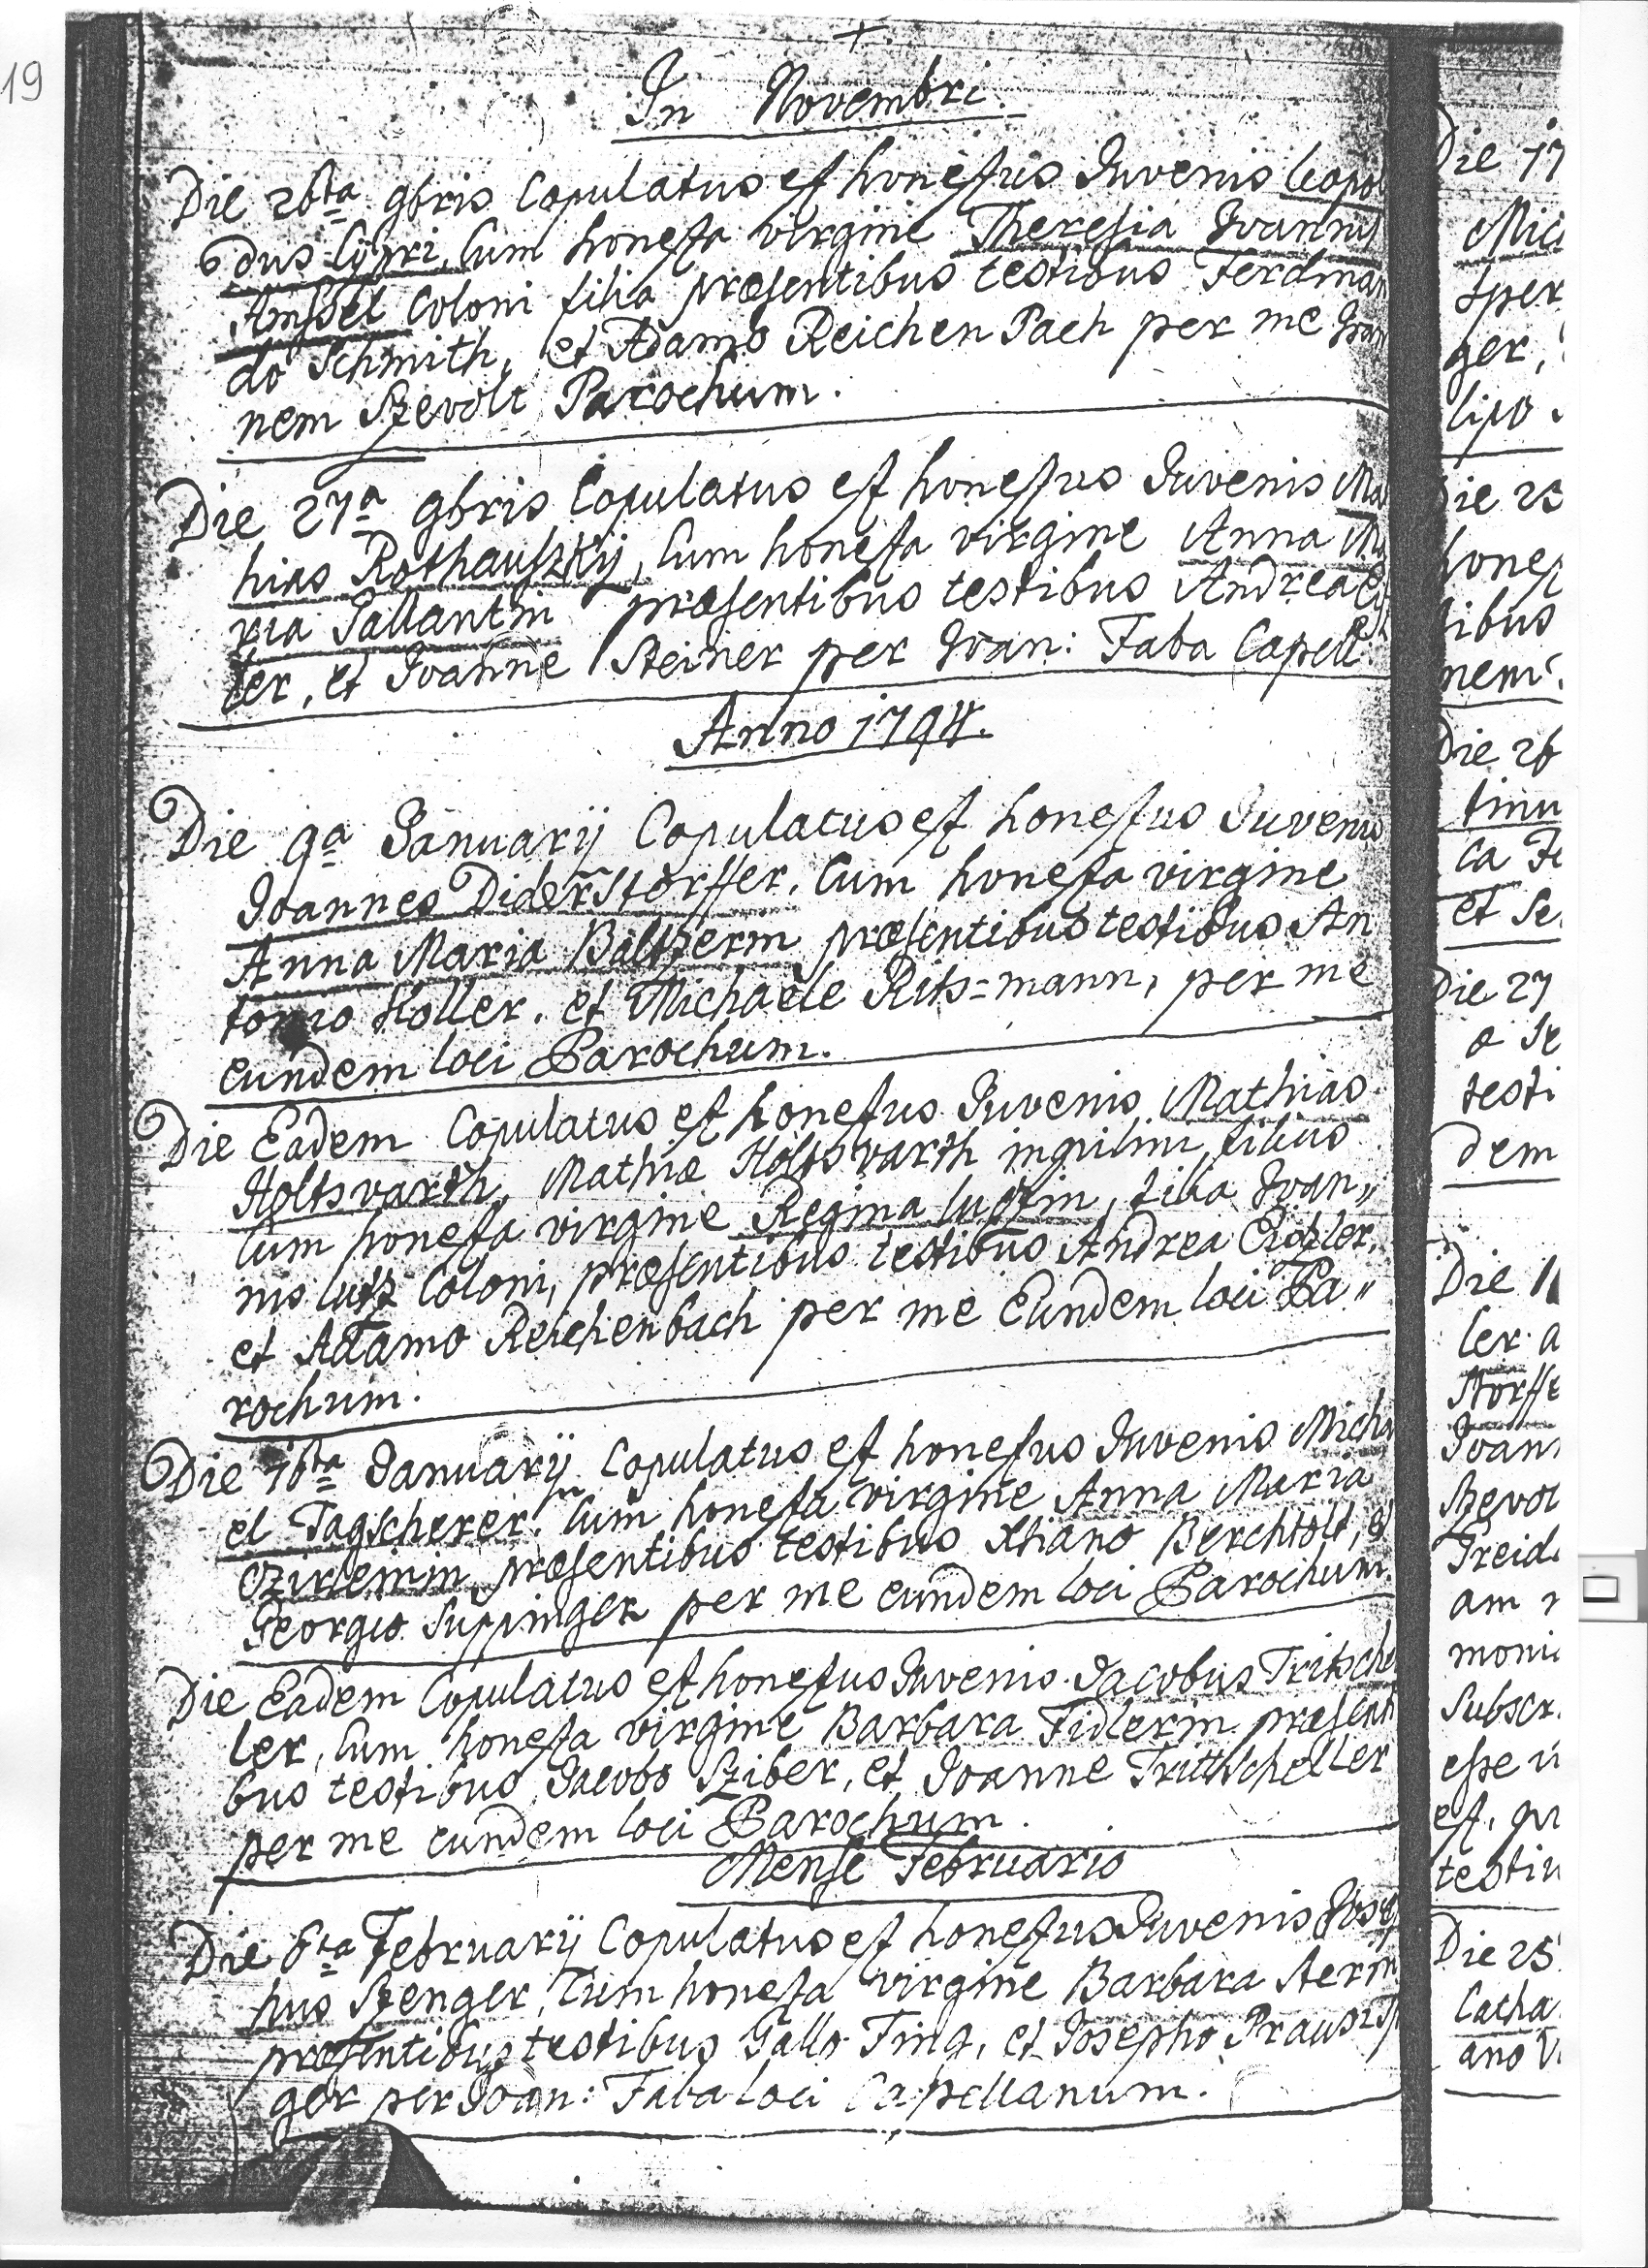 19
In Novembri.
Die 26ta 9bris Copulatus est honestus Juvenis Leopol
dus Cypri, Cum honesta virgine Theresia Joannis
Amssel Coloni filia præsentibus testibus Ferdinan
do Schmith, et Adamo Reichen Pach per me Joan
nem Szevolt Parochum.
Die 27a 9bris Copulatus est honestus Juvenis Mat
hias Rothauszkÿ, Cum honesta virgine Anna Ma
ria Gallantin præsentibus testibus Andrea
ler, et Joanne Steiner per Joan: Faba Capell
Anno 1794.
Die 9a Januarÿ Copulatus est honestus Juvenis
Joannes Diderstorffer, Cum honesta virgine
Anna Maria Baltzerin præsentibus testibus An
tonio Holler, et Michaele Rits=mann, per me
eundem loci Parochum.
Die Eadem Copulatus est honestus Juvenis Mathias
Holtsvarth, Mathiæ Holtsvarth inquilini filius
Cum honesta virgine Regina Lutzin, filia Joan„
nis Lutz Coloni, præsentibus testibus Andrea
et Adamo Reichenbach per me Eundem loci Pa„
rochum.
Die 16ta Januarÿ Copulatus est honestus Juvenis Micha
el Tagscherer, Cum honesta virgine Anna Maria
Czirlemin, præsentibus testibus Xtiano Berchtolt, et
Georgio Suppinger per me eundem loci Parochum.
Die Eadem Copulatus est honestus Juvenis Jacobus Tritsche
ler, Cum honesta virgine Barbara Fidlerin præsenti
bus testibus Jacobo Sziber, et Joanne Trittscheller
per me eundem loci Parochum.
Mense Februario
Die 6ta Februarÿ Copulatus est honestus Juvenis Josep
hus Szenger, Cum honesta virgine Barbara Sterin
præsentibus testibus Gallo Fing, et Josepho
ger per Joan: Faba loci Capellanum.
Die 17
Mic
sper
ger,
lipo
Die 23
hones
tibus
nem
Die 26
tinu
ca Fe
et Se
Die 27
a Se
testi
dem
Die 11
ler a
storffe
Joan
Szevol
Freid
am
moni
Subscr
esse
est, qu
testiu
Die 25
Catha
ano V